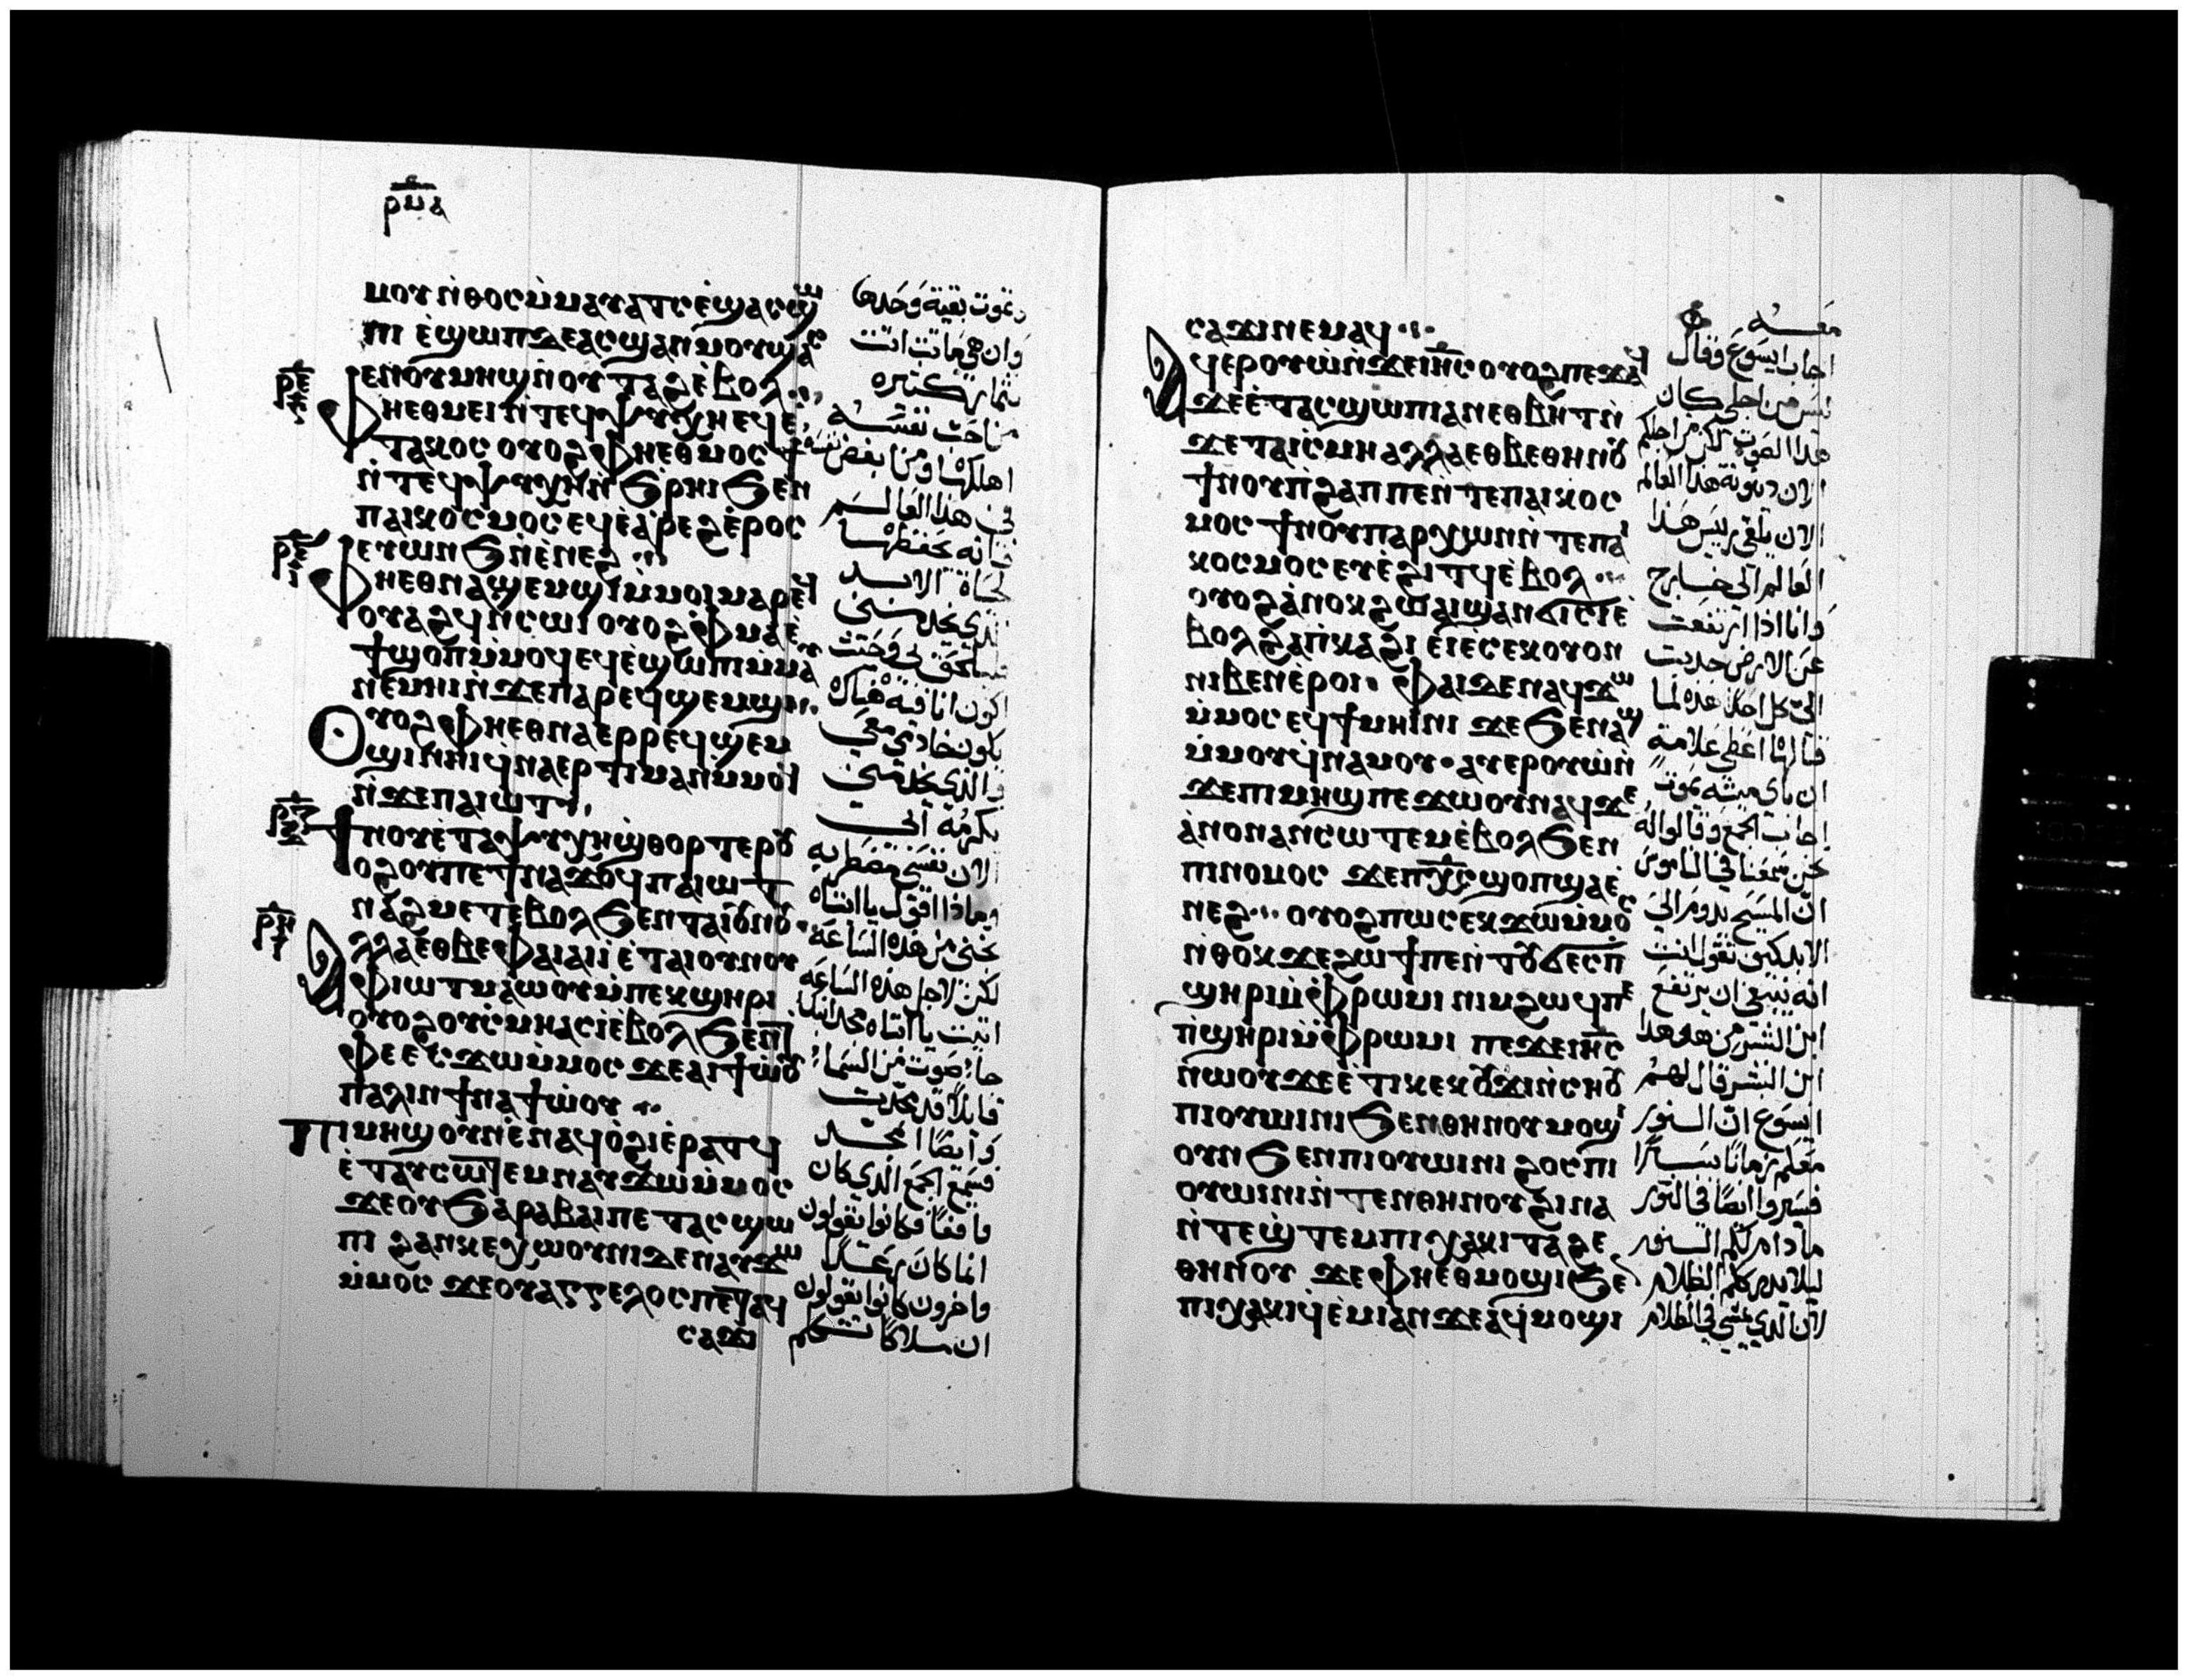 ⲣⲙⲁ
ⲙⲟⲩ ⲛ̀ⲑⲟⲥ ⲙ̀ⲙⲁⲩⲁⲧⲥ ⲉ̀ϣⲁⲥϣⲱ
ⲡⲓ ⲉ̀ϣⲱⲡ ⲇⲉ ⲁⲥϣⲁⲛⲙⲟⲩ ϣⲁⲥ
ⲉⲛ ⲟⲩⲙⲏϣ ⲛ̀ⲟⲩⲧⲁϩ ⲉ̀ⲃⲟⲗ
ⲫⲏ ⲉⲑⲙⲉⲓ ⲛ̀ⲧⲉϥⲯⲩⲭⲏ ⲉϥⲉ̀
ⲧⲁⲕⲟⲥ ⲟⲩⲟϩ ⲫⲏ ⲉⲑⲙⲟⲥϯ
ⲛ̀ⲧⲉϥⲯⲩⲭⲏ ⲛ̀ϧⲣⲏⲓ ϧⲉⲛ
ⲡⲁⲓⲕⲟⲥⲙⲟⲥ ⲉϥⲉ̀ⲁ̀ⲣⲉϩ ⲉ̀ⲣⲟⲥ
ⲉⲩⲱⲛϧ ⲛ̀ⲉ̀ⲛⲉϩ
ⲫⲏ ⲉⲑⲛⲁϣⲉⲙϣⲓ ⲙ̀ⲙⲟⲓ ⲙⲁⲣⲉϥ
ⲟⲩⲁϩϥ ⲛ̀ⲥⲱⲓ ⲟⲩⲟϩ ⲫⲙⲁ ⲉ̀
ϯϣⲟⲡ ⲙ̀ⲙⲟϥ ⲉϥⲉ̀ϣⲱⲡⲓ ⲙ̀ⲙⲁⲩ
ⲛⲉⲙⲏⲓ ⲛ̀ϫⲉ ⲡⲁⲣⲉϥϣⲉⲙϣⲓ
ⲟⲩⲟϩ ⲫⲏ ⲉⲑⲛⲁⲉⲣⲣⲉϥϣⲉⲙ
ϣⲓ ⲛⲏⲓ ϥ̀ⲛⲁⲉⲣⲧⲓⲙⲁⲛ ⲙ̀ⲙⲟϥ
ⲛ̀ϫⲉ ⲡⲁⲓⲱⲧ
ϯⲛⲟⲩ ⲉ̀ⲧⲁⲯⲩⲭⲏ ϣ̀ⲑⲟⲣⲧⲉⲣ ⲟⲩ
ⲟϩ ⲟⲩ ⲡⲉϯⲛⲁϫⲟϥ ⲡⲁⲓⲱⲧ
ⲛⲁϩⲙⲉⲧ ⲉ̀ⲃⲟⲗ ϧⲉⲛ ⲧⲁⲓⲟⲩⲛⲟⲩ
ⲁⲗⲗⲁ ⲉⲑⲃⲉ ⲫⲁⲓ ⲁⲓⲓ̀ ⲉ̀ⲧⲁⲓⲟⲩⲛⲟⲩ
ⲫⲓⲱⲧ ⲙⲁⲱⲟⲩ ⲙ̀ⲡⲉⲕϣⲏⲣⲓ
ⲟⲩⲟϩ ⲟⲩⲥ̀ⲙⲏ ⲁⲥⲓ̀ ⲉ̀ⲃⲟⲗ ϧⲉⲛ ⲧ
ⲫⲉ ⲉⲥϫⲱ ⲙ̀ⲙⲟⲥ ϫⲉ ⲁⲓϯⲱ̀ⲟⲩ
ⲡⲁⲗⲓⲛ ϯⲛⲁϯⲱ̀ⲟⲩ
ⲡⲓⲙⲏϣ ⲟⲩⲛ ⲉ̀ⲛⲁϥⲟ̀ϩⲓ ⲉ̀ⲣⲁⲧϥ
ⲉ̀ⲧⲁⲩⲥⲱⲧⲉⲙ ⲛⲁⲩϫⲱ ⲙ̀ⲙⲟⲥ
ϫⲉ ⲟⲩϧⲁⲣⲁⲃⲁⲓ ⲡⲉⲧⲁⲥϣⲱ
ⲡⲓ ϩⲁⲛⲕⲉⲭⲱⲟⲩⲛⲓ ⲇⲉ ⲛⲁⲩϫⲱ
ⲙ̀ⲙⲟⲥ ϫⲉ ⲟⲩⲁⲅⲅⲉⲗⲟⲥ ⲡⲉⲧⲁϥ
ⲥⲁϫⲓ
وتموت بقية وحدها
وان هي ماتت اتت
بثمار كثيرة
من احب نفسه
اهلكها ومن ابغض نفسه
في هذا العالم
فانه يحفظها
لحياة الابد
الذي يخدمني
فليلحقني وحيث
اكون انا فيه هناك
يكون خادمي معي
والذي يخدمني
يكرمه ابي
الان نفسي مضطربه
وماذا اقول يا ابتاه
نجني من هذه الساعة
لكن لاجل هذه الساعة
اتيت يا ابتاه مجد ابنك
جاء صوت من السماء
قايلا قد مجدت
وايضا امجد
فسمع الجمع الذي كان
واقفا فكانوا يقولون
انما كان رعدا
واخرون كانوا يقولون
ان ملاكا كلم
ⲣⲉ
ⲣⲋ
ⲣⲍ
ⲣⲏ
ⲥⲁϫⲓ ⲛⲉⲙⲁϥ
ⲁϥⲉⲣⲟⲩⲱ̀ ⲛ̀ϫⲉ ⲓⲏⲥ ⲟⲩⲟϩ ⲡⲉϫⲁϥ
ϫⲉ ⲉ̀ⲧⲁⲥϣⲱⲡⲓ ⲁⲛ ⲉⲑⲃⲏⲧ ⲛ̀
ϫⲉ ⲧⲁⲓⲥ̀ⲙⲏ ⲁⲗⲗⲁ ⲉⲑⲃⲉ ⲑⲏⲛⲟⲩ
ϯⲛⲟⲩ ⲡ̀ϩⲁⲡ ⲡⲉ ⲛ̀ⲧⲉ ⲡⲁⲓⲕⲟⲥ
ⲙⲟⲥ ϯⲛⲟⲩ ⲡⲁⲣⲭⲱⲛ ⲛ̀ⲧⲉ ⲡⲁⲓ
ⲕⲟⲥⲙⲟⲥ ⲉⲩⲉ̀ϩⲓⲧϥ ⲉ̀ⲃⲟⲗ
ⲟⲩⲟϩ ⲁ̀ⲛⲟⲕ ϩⲱ ⲁⲓϣⲁⲛϭⲓⲥⲓ ⲉ̀
ⲃⲟⲗ ϩⲁ ⲡ̀ⲕⲁϩⲓ ⲉⲓⲉ̀ⲥⲉⲕ ⲟⲩⲟⲛ
ⲛⲓⲃⲉⲛ ⲉ̀ⲣⲟⲓ ⲫⲁⲓ ⲇⲉ ⲛⲁϥϫⲱ
ⲙ̀ⲙⲟⲥ ⲉϥϯⲙⲏⲓⲛⲓ ϫⲉ ϧⲉⲛ ⲁϣ
ⲙ̀ⲙⲟⲩ ϥ̀ⲛⲁⲙⲟⲩ ⲁⲩⲉⲣⲟⲩⲱ̀ ⲛ̀
ϫⲉ ⲡⲓⲙⲏϣ ⲡⲉϫⲱⲟⲩ ⲛⲁϥ ϫⲉ
ⲁ̀ⲛⲟⲛ ⲁⲛⲥⲱⲧⲉⲙ ⲉ̀ⲃⲟⲗ ϧⲉⲛ
ⲡⲓⲛⲟⲙⲟⲥ ϫⲉ ⲡⲭ̅ⲥ̅ ϣⲟⲡ ϣⲁ ⲉ̀
ⲛⲉϩ ⲟⲩⲟϩ ⲡⲱⲥ ⲉⲕϫⲱ ⲙ̀ⲙⲟⲥ
ⲛ̀ⲑⲟⲕ ϫⲉ ϩⲱϯ ⲡⲉ ⲛ̀ⲧⲟⲩϭⲉⲥ ⲡ
ϣⲏⲣⲓ ⲙ̀ⲫⲣⲱⲙⲓ ⲛⲓⲙ ϩⲱϥ ⲡⲉ
ⲡ̀ϣⲏⲣⲓ ⲙ̀ⲫⲣⲱⲙⲓ ⲡⲉϫⲉ ⲓⲏⲥ
ⲛ̀ⲱⲟⲩ ϫⲉ ⲉ̀ⲧⲓ ⲕⲉⲕⲟⲩϫⲓ ⲛ̀ⲥⲏⲟⲩ
ⲡⲓⲟⲩⲱⲓⲛⲓ ϧⲉⲛ ⲑⲏⲛⲟⲩ ⲙⲟϣⲓ
ⲟⲩⲛ ϧⲉⲛ ⲡⲓⲟⲩⲱⲓⲛⲓ ϩⲟⲥ ⲡⲓ
ⲟⲩⲱⲓⲛⲓ ⲛ̀ⲧⲉⲛ ⲑⲏⲛⲟⲩ ϩⲓⲛⲁ
ⲛ̀ⲧⲉϣ̀ⲧⲉⲙ ⲡⲓⲭⲁⲕⲓ ⲧⲁϩⲉ
ⲑⲏⲛⲟⲩ ϫⲉ ⲫⲏ ⲉⲑⲙⲟϣⲓ ϧⲉⲛ
ⲡⲓⲭⲁⲕⲓ ϥ̀ⲉ̀ⲙⲓ ⲁⲛ ϫⲉ ⲁϥⲙⲟϣⲓ
معه
اجاب ايسوع وقال
ليس من اجلي كان
هذا الصوت لكن من اجلكم
الان دينونة هذا العالم
الان يلقى رييس هذا
العالم الى خارج
وانا اذا ارتفعت
عن الارض جذبت
الي كل احد هذه لما
قالها اعطى علامة
ان باي ميتة يموت
اجاب الجمع وقالوا له
نحن سمعنا في الناموس
ان المسيح يدوم الى
الابد كيف تقول انت
انه ينبغي ان يرتفع
ابن البشر من هو هذا
ابن البشر قال لهم
ايسوع ان النور
معكم زمانا يسيرا
فسيروا ايضا في النور
ما دام لكم النور
ليلا يدرككم الظلام
لان الذي يمشي في الظلام